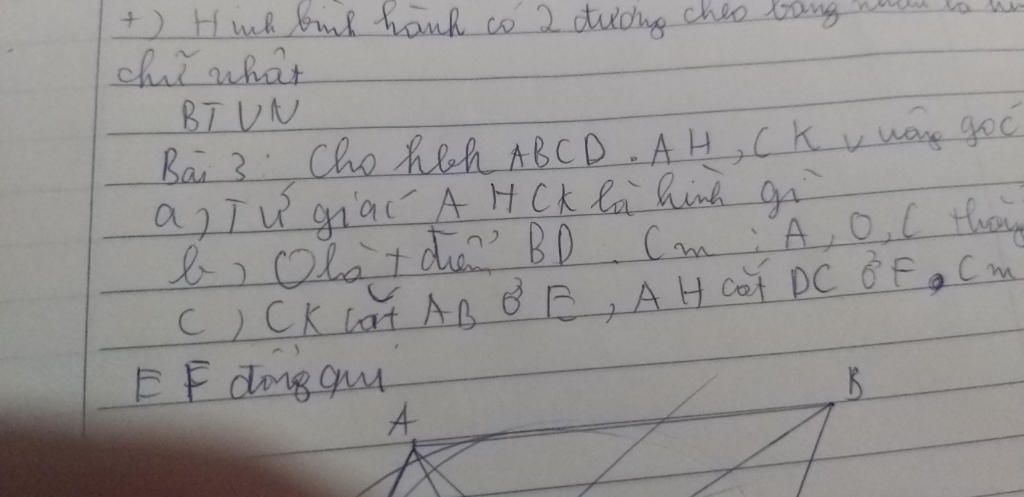 +) Hình bình hành có 2 đường chéo bằng nhau là
chữ nhật
BTVN
Bài 3: Cho hbh ABCD. AH, CK vuông góc
a, Tứ giác AHCK là hình gì
b, O là t điểm BD. Cm: A, O, C thẳng
c) CK cắt AB ở E, AH cắt DC ở F. Cm
EF đồng qui
A
B